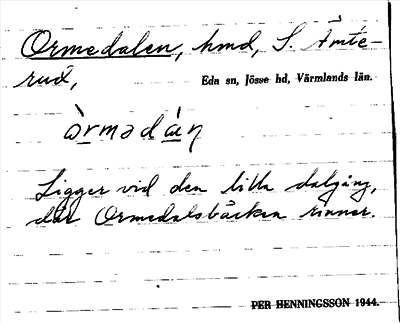 Ormedalen, hmd, S. Ämte-
rud,
Eda sn, Jösse hd, Värmlands län.
òrmədàn
Ligger vid den lilla dalgång,
där Ormedalsbäcken rinner.
PER HENNINGSSON 1944.